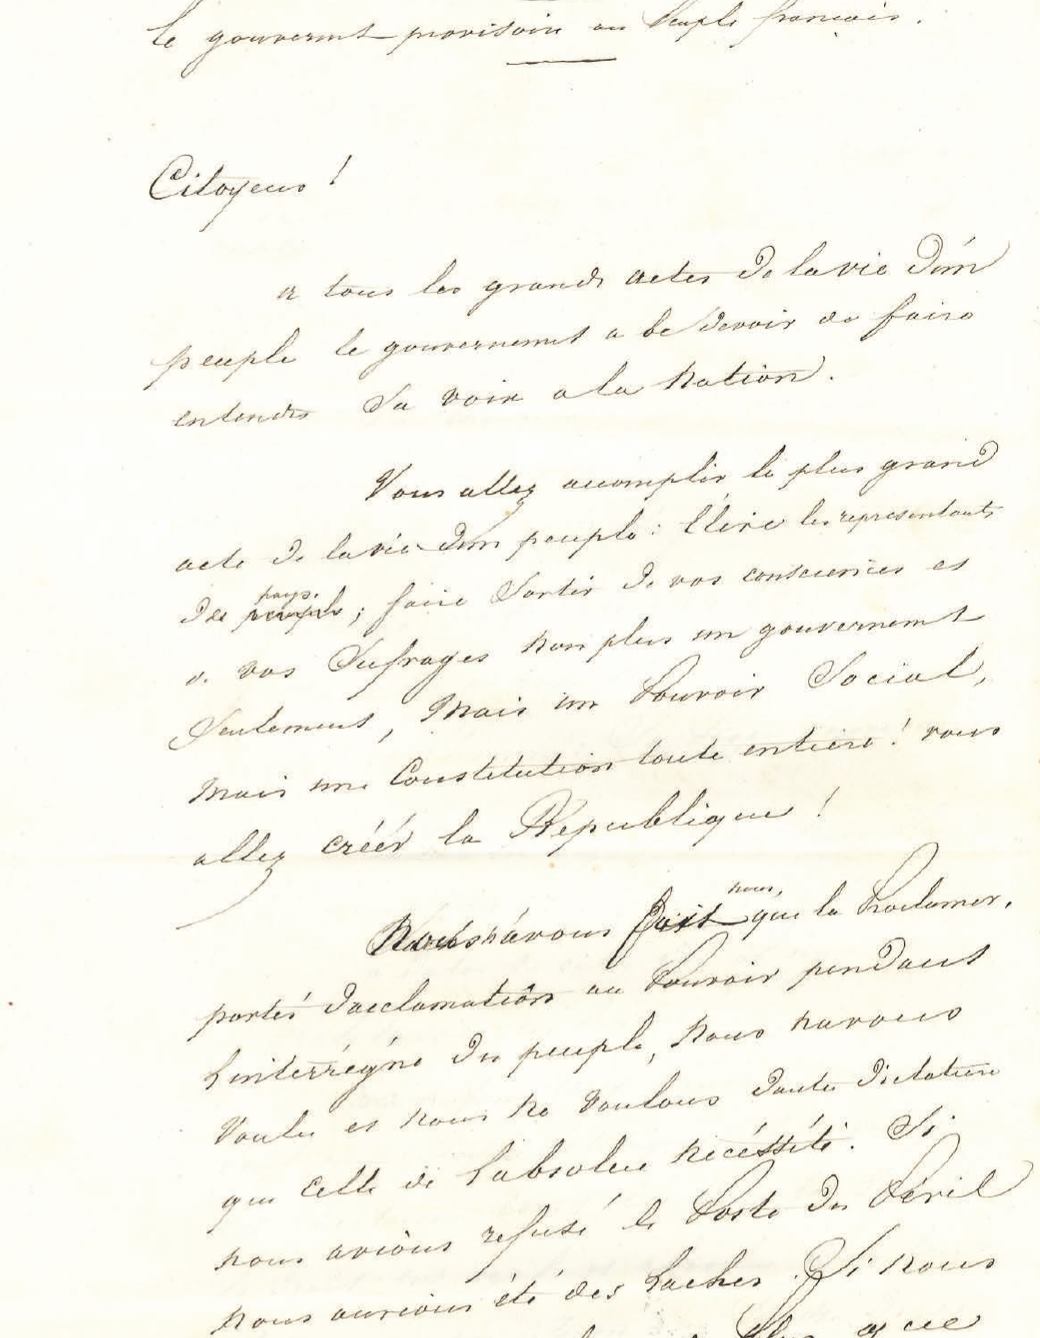 le gouvernmt provisoire au Peuple francais.
Citoyens !
a tous les grands actes de la vie d'un
peuple le gouvernemnt a le devoir de faire
entendre Sa voix a la Nation.
Vous allez accomplir le plus grand
acte de la vie d'un peuple : Élire les representants
du pays. peuple ; faire Sortir de vos consciences et
de vos Sufrages non plus un gouvernemnt
Seulement, Mais un Pouvoir Social,
Mais une Constitution toute entière ! vous
allez créér la République !
Nous n'avons fait nous, que la Proclamer.
portés d'acclamation au Pouvoir pendant
L'interrégne du peuple, Nous navons
Voulu et nous ne voulons d'autre dictature
que celle de L'absolue nécéssité. Si
nous avions refusé le Poste du Péril
nous aurions été des Laches. Si nous